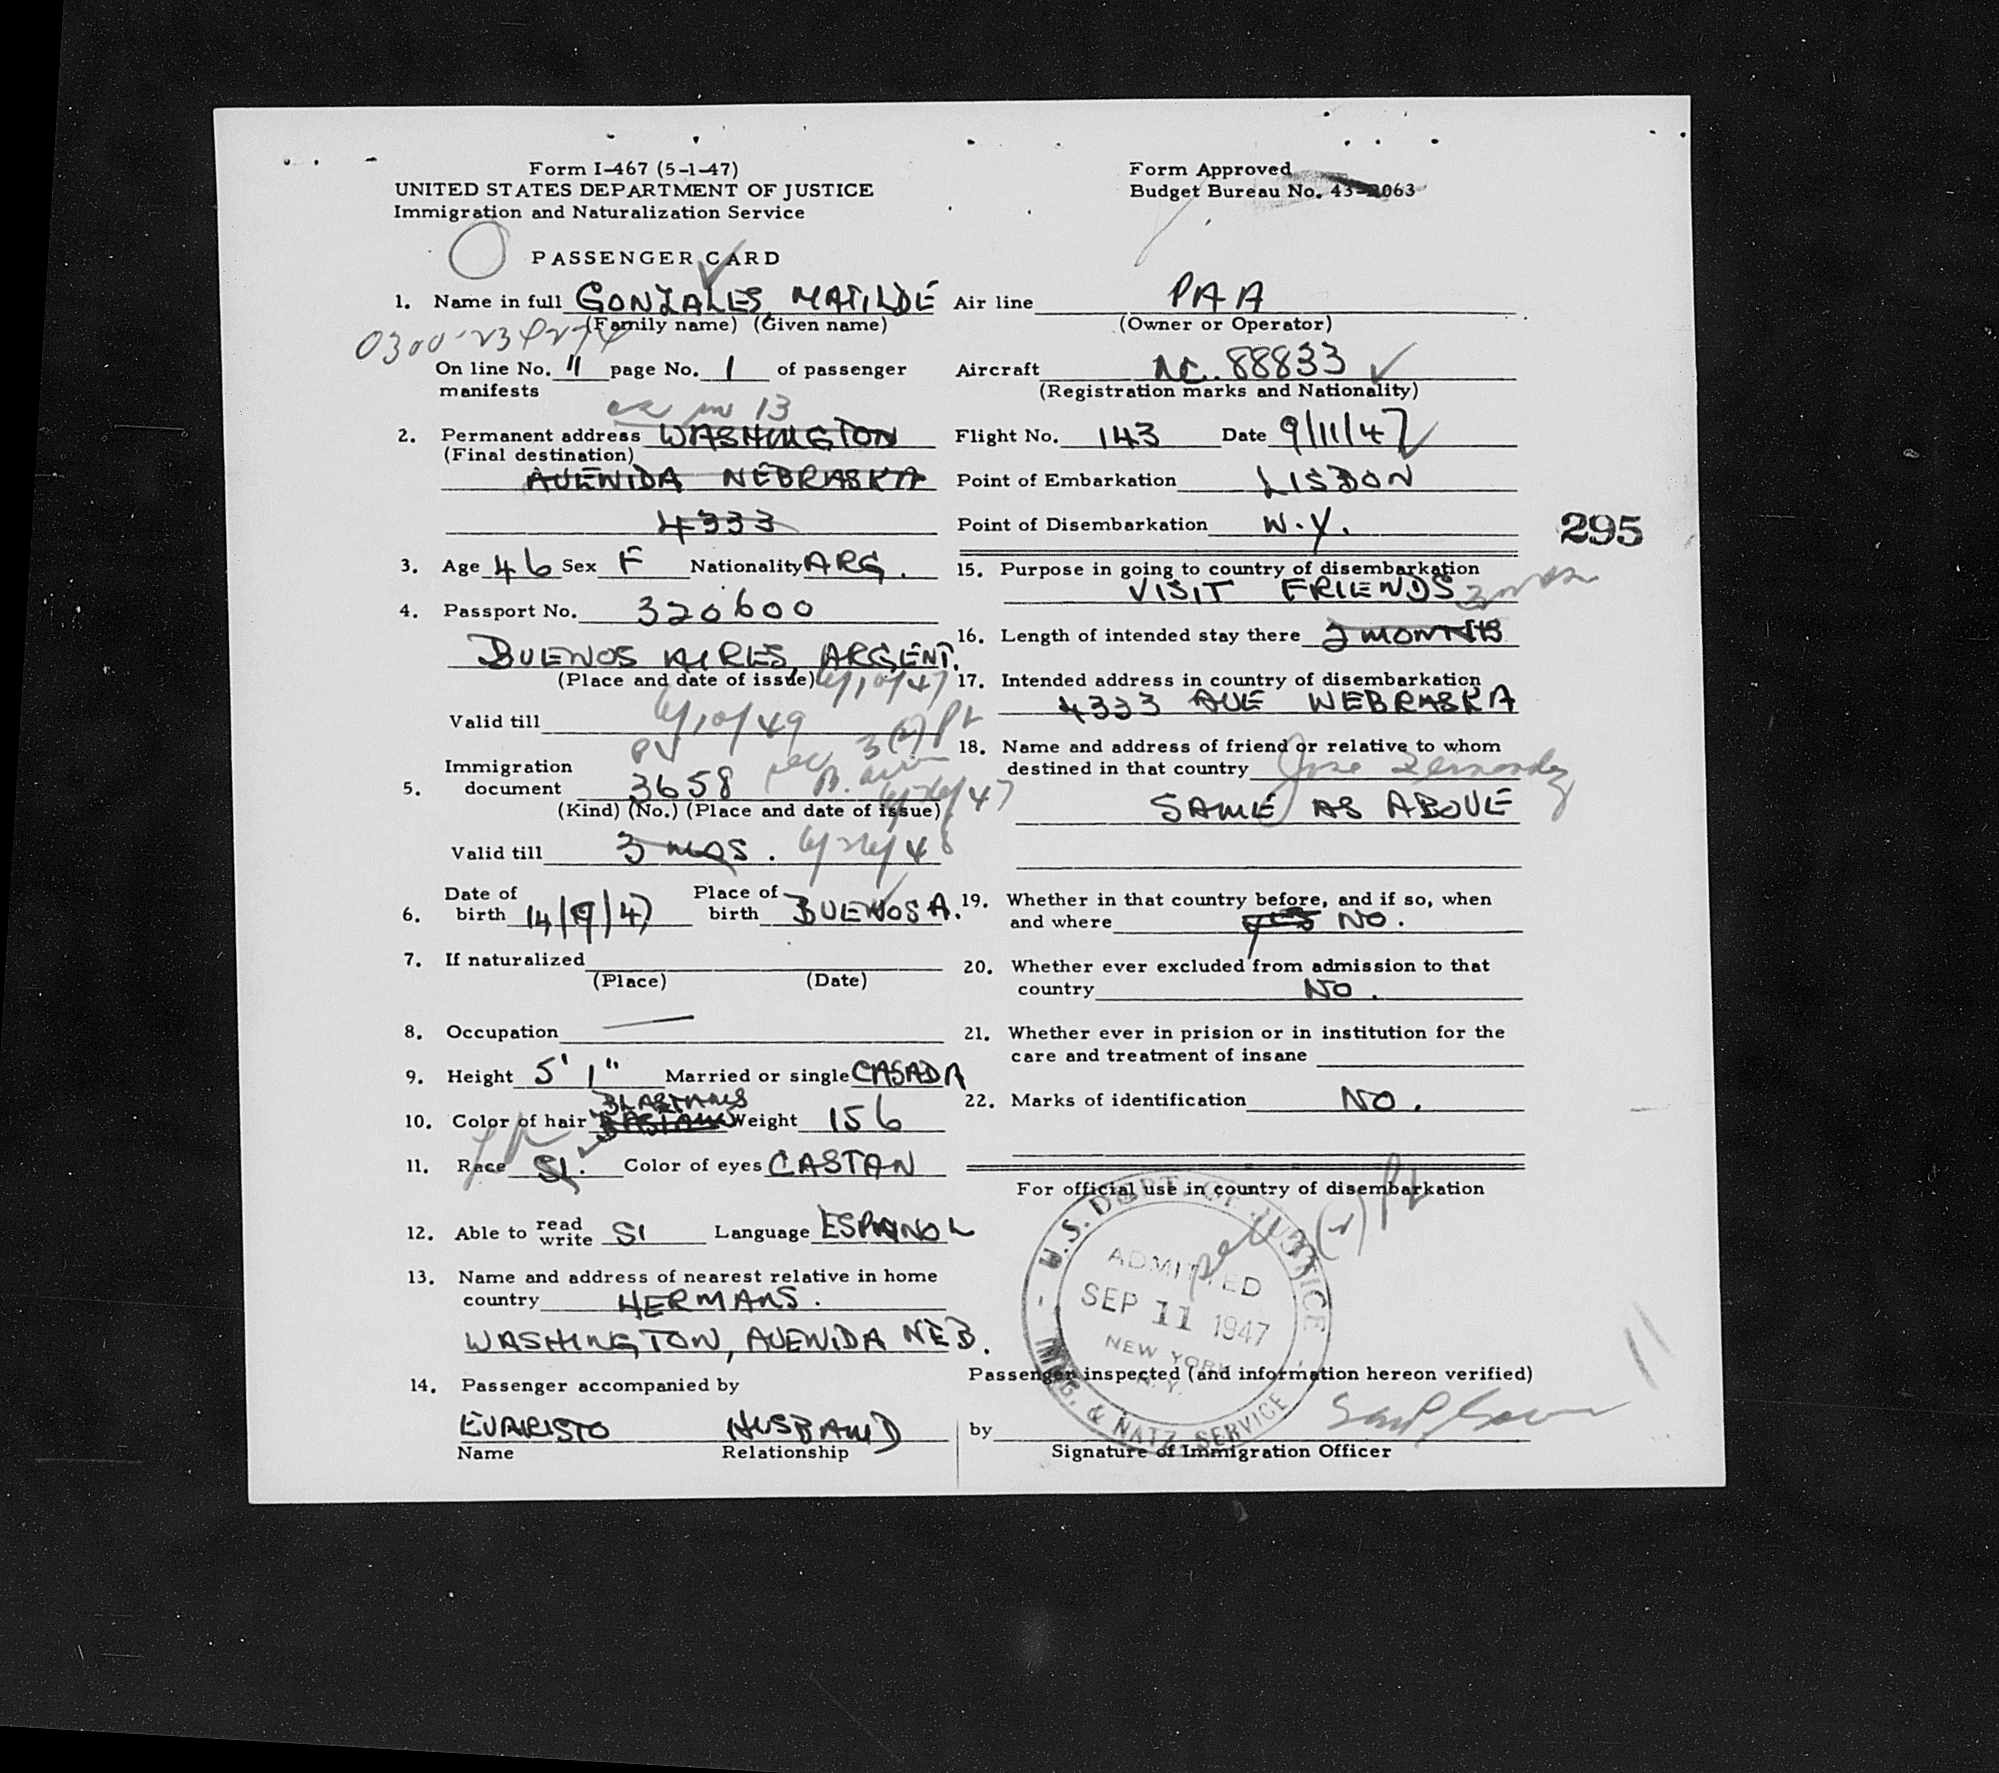 Form I-467 (5-1-47)
UNITED STATES DEPARTMENT OF JUSTICE
Immigration and Naturalization Service
PASSENGER CARD
1. Name in full GONZALES, MATILDE
(Family name) (Given name)
0300-
On line No. 11 page No. 1 of passenger
manifests
13
2. Permanent address WASHINGTON
(Final destination)
AVENIDA NEBRASKA
4333
3. Age 46 Sex F Nationality ARG.
4. Passport No. 320600
BUENOS AIRES, ARGENT.
(Place and date of issue) 6/10/47
Valid till 6/10/49
PV
3(2) PV
Immigration
5. document 3658
6/26/47
(Kind) (No.) (Place and date of issue)
Valid till 3 MOS. 6/26/48
Date of Place of
6. birth 14/9/47 birth BUENOS A.
7. If naturalized
(Place) (Date)
8. Occupation —
9. Height 5' 1" Married or single CASADA
10. Color of hair Weight 156
11. Race SI. Color of eyes CASTAN
12. Able to read write SI Language ESPANOL
13. Name and address of nearest relative in home
country HERMANS.
WASHINGTON, AVENIDA NEB.
14. Passenger accompanied by
EVARISTO HUSBAND
Name Relationship
Form Approved
Budget Bureau No. 43-R063
Air line PAA
(Owner or Operator)
Aircraft NC. 88833
(Registration marks and Nationality)
Flight No. 143 Date 9/11/47
Point of Embarkation LISBON
Point of Disembarkation N.Y.
295
15. Purpose in going to country of disembarkation
VISIT FRIENDS
16. Length of intended stay there 2 MONTHS
17. Intended address in country of disembarkation
4333 AVE NEBRASKA
18. Name and address of friend or relative to whom
destined in that country Jose Fernandez
SAME AS ABOVE
19. Whether in that country before, and if so, when
and where YES NO.
20. Whether ever excluded from admission to that
country NO.
21. Whether ever in prision or in institution for the
care and treatment of insane
22. Marks of identification NO.
For official use in country of disembarkation
U.S. DEPT. OF JUSTICE
ADMITTED
SEP 11 1947
NEW YORK
N.Y.
IMMG. & NATZ. SERVICE
11
Passenger inspected (and information hereon verified)
by
Signature of Immigration Officer